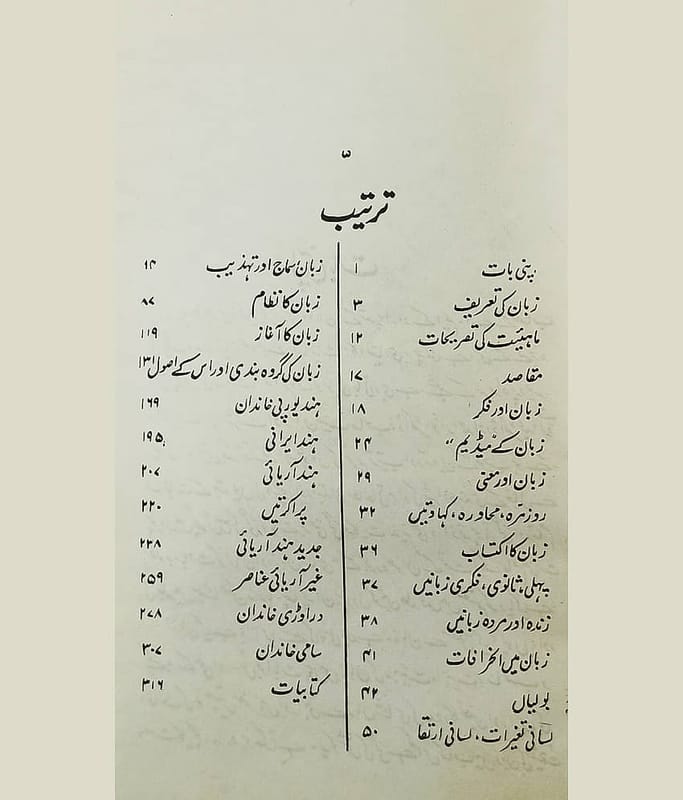 ترتیب
پنی بات ۱
زبان کی تعریف ۳
ماہیئت کی تصریحات ۱۲
مقاصد ۱۷
زبان اور فکر ۱۸
زبان کے "میڈیم" ۲۴
زبان اور معنی ۲۹
روزمرّہ، محاورہ، کہاوتیں ۳۲
زبان کا اکتساب ۳۶
پہلی، ثانوی، فکری زبانیں ۳۷
زندہ اور مردہ زبانیں ۳۸
زبان میں انحرافات ۴۱
بولیاں ۴۲
لسانی تغیرات، لسانی ارتقا ۵۰
زبان، سماج اور تہذیب
زبان کا نظام ۸۷
زبان کا آغاز ۱۱۹
زبان کی گروہ بندی اور اس کے اصول ۱۳۱
ہند یورپی خاندان ۱۶۹
ہند ایرانی ۱۹۵
ہند آریائی ۲۰۷
پراکرتیں ۲۲۰
جدید ہند آریائی ۲۳۸
غیر آریائی عناصر ۲۵۹
دراوڑی خاندان ۲۷۸
سامی خاندان ۳۰۷
کتابیات ۳۱۶